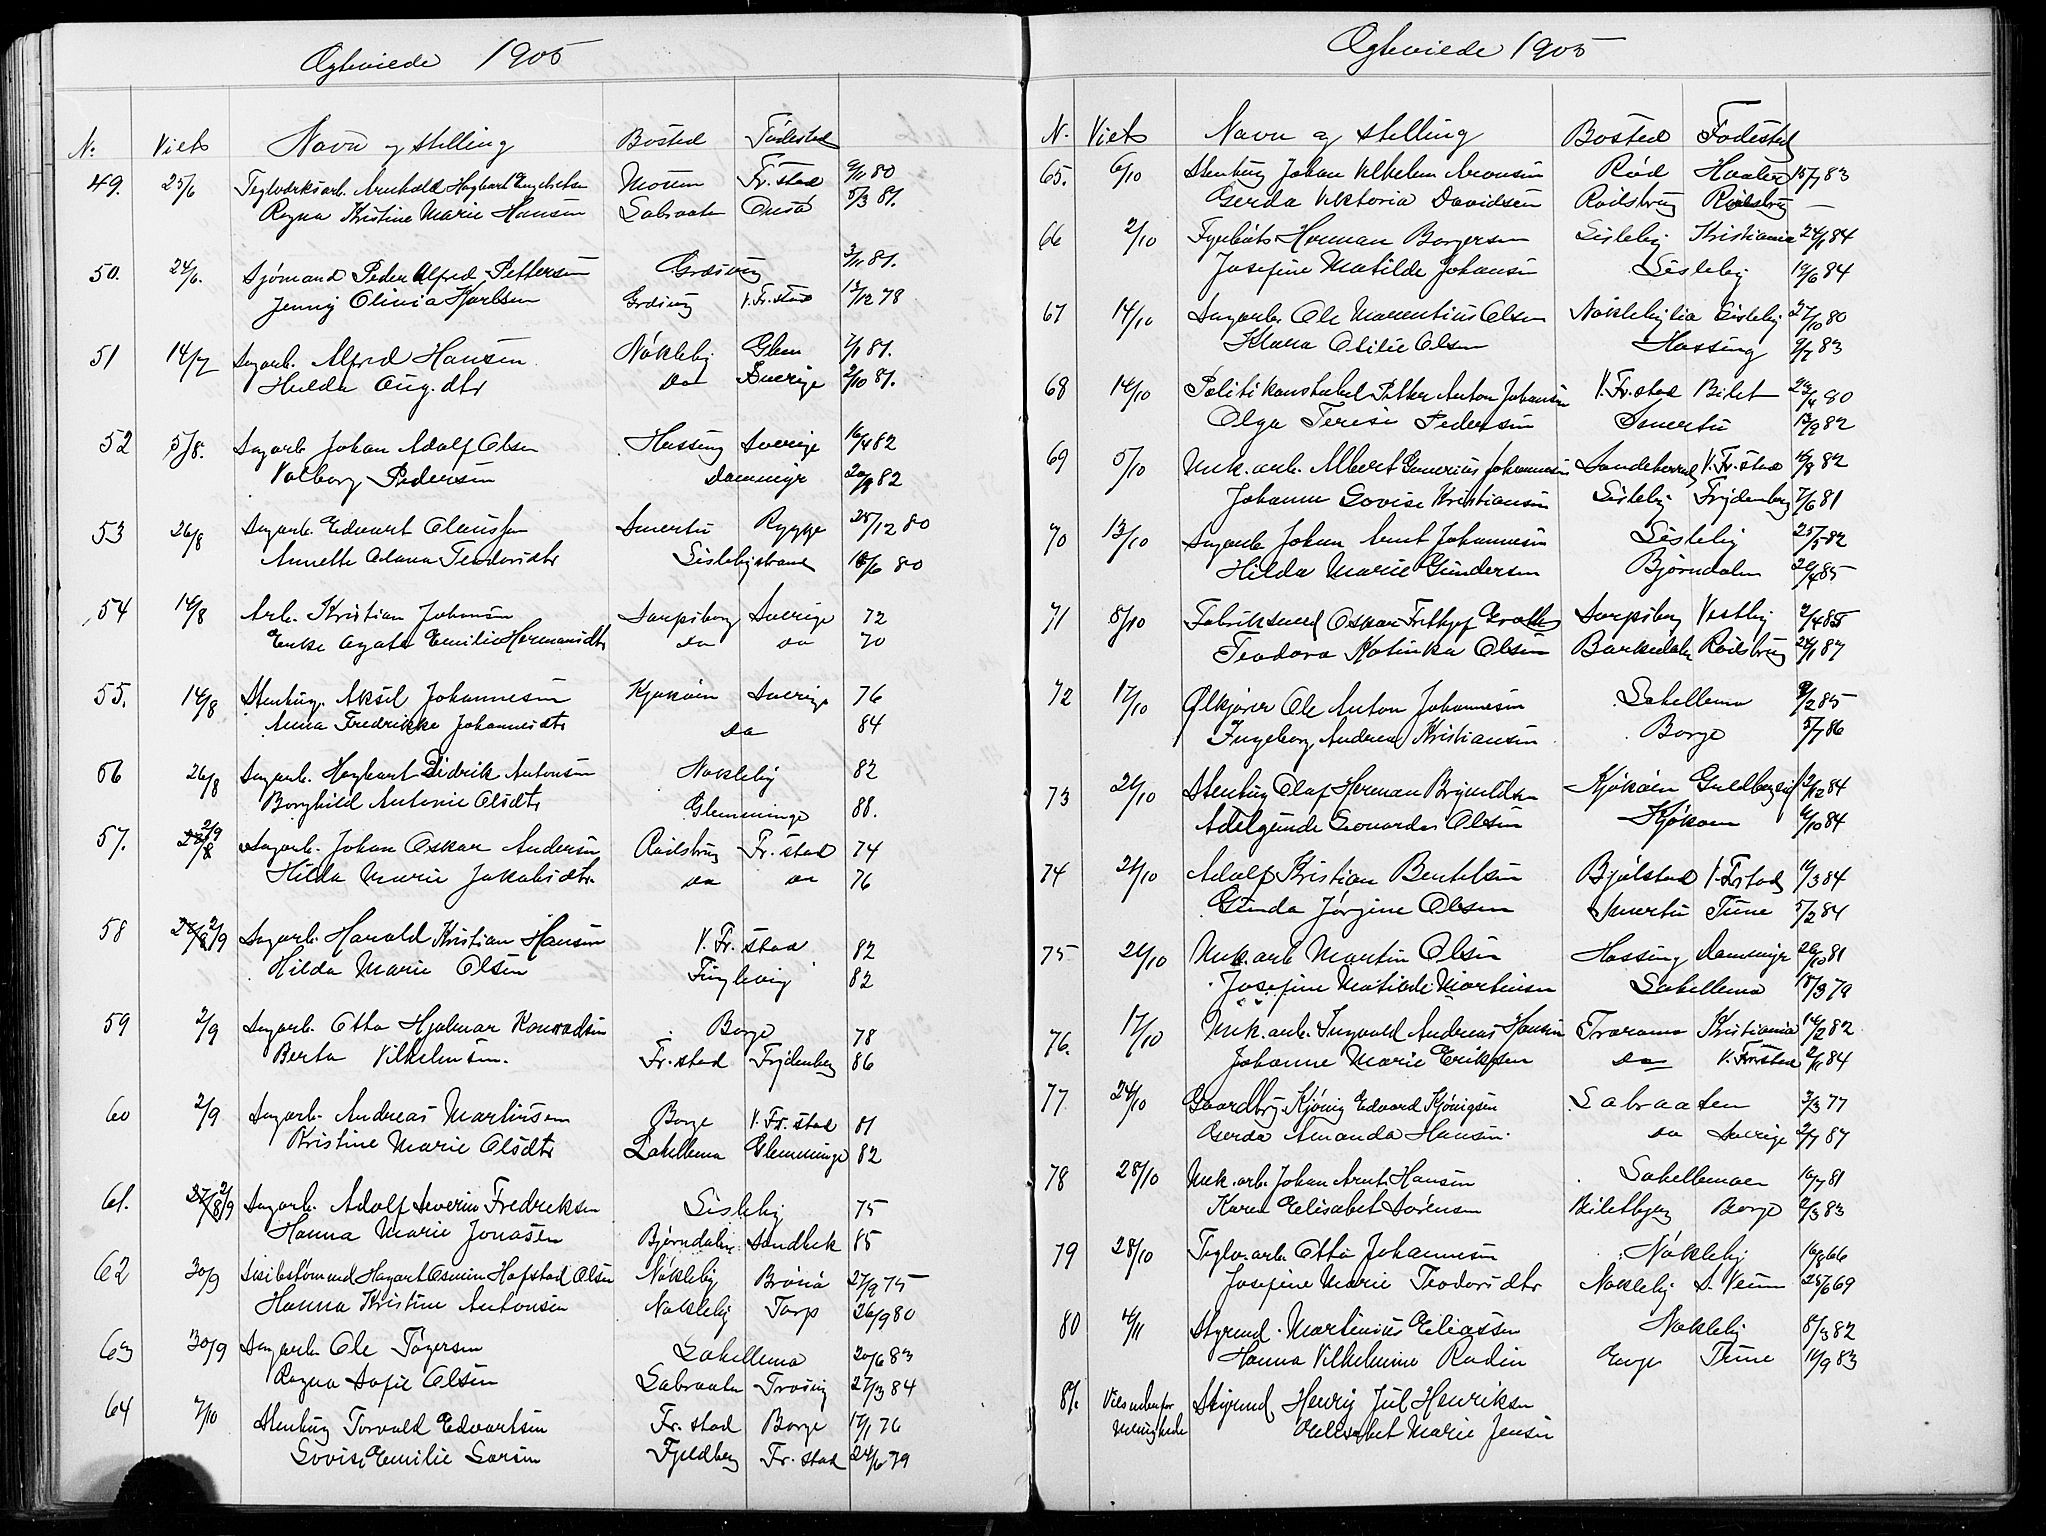 Ægteviede 1905
No Viets Navn og stilling Bosted Födested
49. 25/6 Teglværksarb. Arnholdt Hagbart Engebretsen Moum Fr.stad 9/11 80
Ragna Kristine Marie Hansen Labraaten Onsö 5/3 81.
50. 24/6. Sjömand Peder Alfred Pettersen Græsvig 3/11 81.
Jenny Olivia Karlsen Græsvig V.Fr.stad 13/12 78
51 14/7 Sagarb. Alfred Hansen Nökleby Glem 7/1 81.
Hulda Aug.dtr do Sverige 2/10 81.
52 5/8. Sagarb. Johan Adolf Olsen Hassing Sverige 16/4 82
Valborg Pedersen Dammyr 20/9 82
53 26/8 Sagarb. Edvart Claussen Smertu Rygge 28/12 80
Annette Olava Teodorsdtr Lislebystrand 18/6 80
54 14/8 Arb. Kristian Johansen Sarpsborg Sverige 72
Enke Agate Emilie Hermansdtr do do 70
55. 14/8 Stenhug. Aksel Johannesen Kjøköen Sverige 76
Anna Fredrikke Johannesdtr do 84
56 26/8 Sagarb. Hagbart Didrik Antonsen Nökleby 82
Borghild Antonie Olsdtr Glemminge 88.
57. 2/9 Sagarb. Johan Oskar Andersen Rödsbrug Fr.stad 74
Hilda Marie Jakobsdtr. do do 76
58 2/9 Sagarb. Harald Kristian Hansen V.Fr.stad 82
Hilda Marie Olsen Tinglevig 82
59 2/9 Sagarb. Otto Hjalmar Konradsen Borge 78
Berta Vilhelmsen. Fr.stad Frydenberg 86
60 2/9 Sagarb. Andreas Martinsen Borge V.Fr.stad 81
Kristine Marie Olsdtr Lahellemo Glemminge 82
61. 27/8 2/9 Sagarb. Adolf Severin Fredriksen Lisleby 75
Hanna Marie Jonasen Bjørndalen Sandbek 85
62 30/9 Hagart Asmin Hofstad Olsen Nökleby Brönö 27/9 75
Hanna Kristine Antonsen Nökleby Torp 26/9 80
63 30/9 Sagarb. Ole Tögersen Lahellemo 20/6 83
Ragna Sofie Olsen Labraaten Trosvig 27/3 84
64 7/10 Stenhug Torvald Edvartsen Fr.stad Borge 17/1 76
Lovise Emilie Larsen Fjeldberg Fr.stad 24/6 79
Ægteviede 1905
N. Viets Navn og stilling Bosted Födested
65. 6/10 Stenhug Johan Vilhelm Aronsen Röd Haabøl 15/7 83
Gerda Viktoria Davidsen Rödsbrug Rödsbrug —
66 2/10 Fyrböts Herman Borgersen Lisleby Kristiania 24/1 84
Josefine Matilde Johansen Lisleby 19/6 84
67 14/10 Sagarb. Ole Marentius Olsen Nöklebylia Lisleby 27/10 80
Klara Otilie Olsen Hassing 9/7 83
68 14/10 Politikonstabel Petter Anton Johansen V.Fr.stad Bilet 23/4 80
Olga Terese Pedersen Smertu 12/9 82
69 5/10 Mek.arb. Albert Emerius Johannesen Sandeherred V.Fr.stad 16/8 82
Johanne Lovise Kristiansen Lisleby Frydenberg 7/6 81
70 13/10 Sagarb. Johan Arnt Johannesen Lisleby 25/5 82
Hilda Marie Gundersen Bjørndalen 20/4 85
71 8/10 Fabriksmed Oskar Frithjof Grath Sarpsborg Vestby 2/4 85
Teodora Katinka Olsen Barkedalen Rödsbrug 24/1 87
72 17/10 Ölkjører Ole Anton Johannesen Lahellemo 9/2 85
Ingeborg Andrea Kristiansen Borge 5/7 86
73 21/10 Stenhug Olaf Herman Brynildsen Kjøköen Guldbergsia 12/12 84
Adelgunde Leonarda Olsen Kjøköen 6/10 84
74 21/10 Adolf Kristian Bentsen Bjölstad V.Frstad 16/3 84
Gunda Jörgine Olsen Smertu Tune 5/2 84
75 21/10 Mek.arb Martin Olsen Hassing Dammyr 26/10 81
Josefine Matilde Martinsen Lahellemo 18/3 79
76. 17/10 Mek.arb. Ingvald Andreas Hansen Traramo Kristiania 14/2 82
Johanne Marie Eriksen do V.Frstad 2/11 84
77 24/10 Gaardbr. Kjönig Edvard Kjönigsen Labraaten 3/3 77
Gerda Amanda Hansen. do Sverige 2/7 87
78 28/10 Mek.arb. Johan Arnt Hansen Lahellemoen 16/7 81
Karen Elisabet Sörensen Biletbyen Borge 2/3 83
79 28/10 Teglv.arb. Otto Johannesen Nökleby 16/8 66
Josefine Marie Teodorsdtr Nökleby S.Veum 25/6 69
80 4/11 Styrmd. Martinius Eliassen Nökleby 8/3 82
Hanna Vilhelmine Rodin Enge Tune 14/9 83
81. Vies udenfor menigheden Styrmd Henry Jul Henriksen
Elisabet Marie Jensen